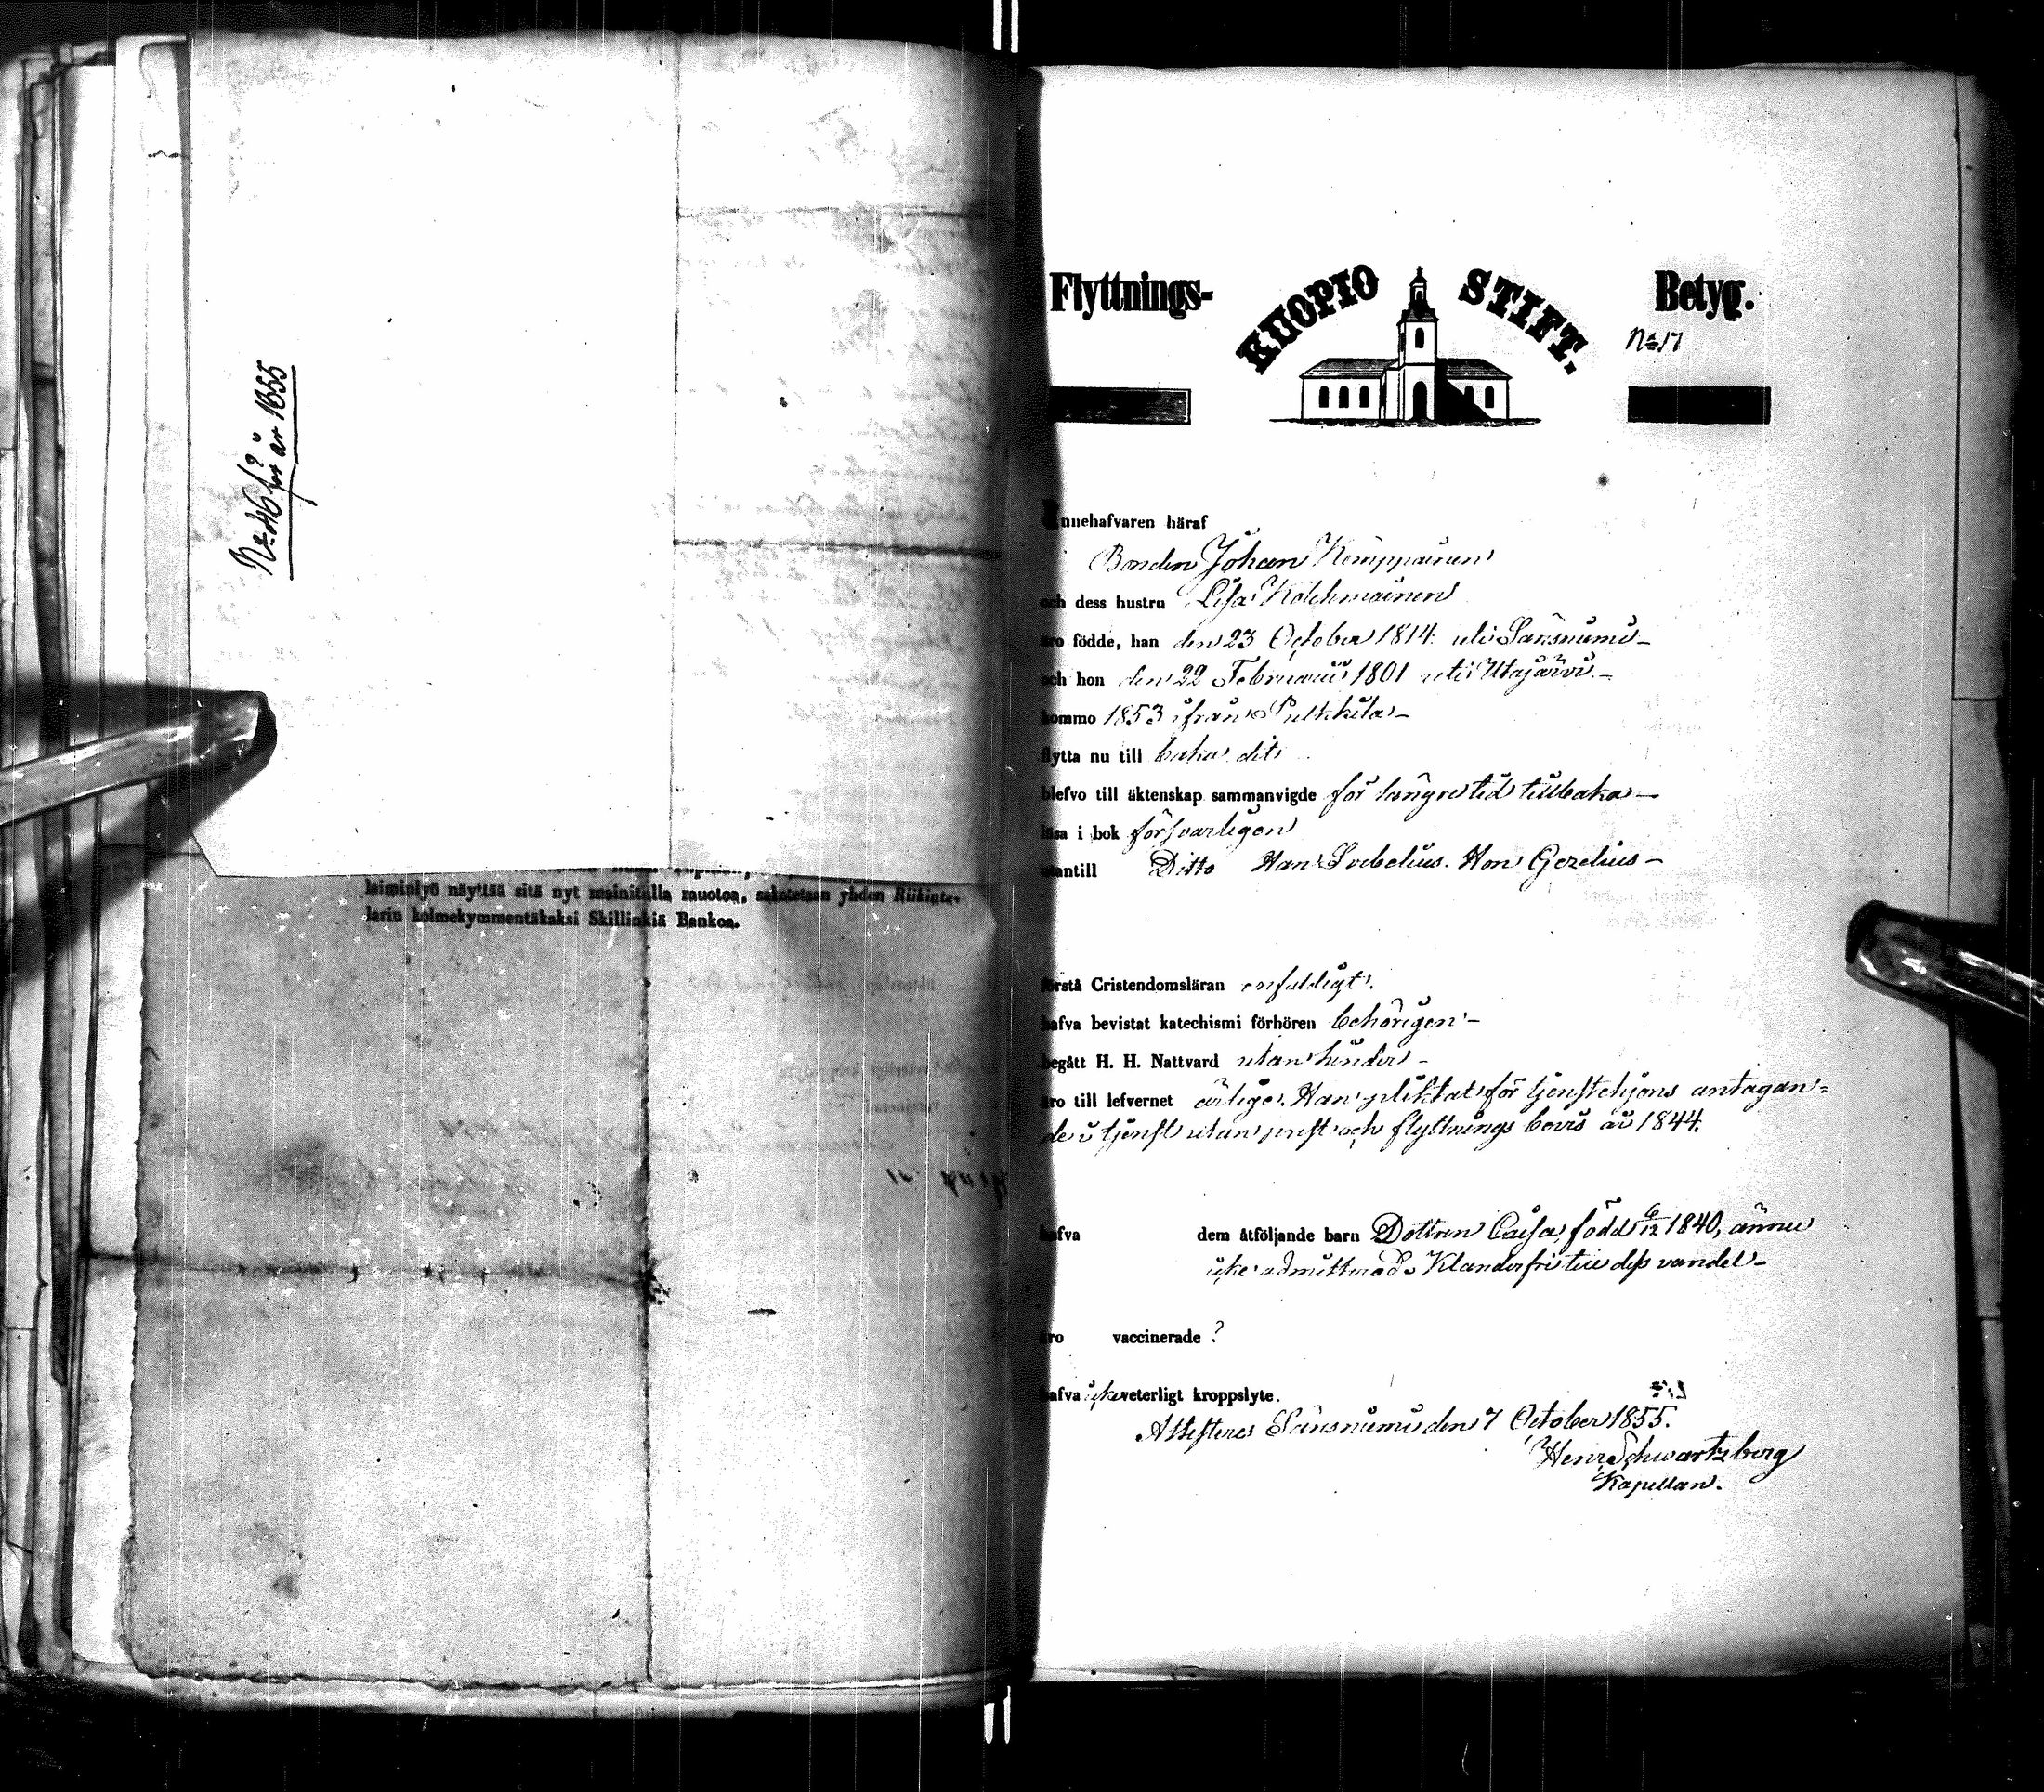 No 46 för år 1855
laiminlyö näyttää sitä nyt mainitulla muotoa, sakotetaan yhden Riikinta-
larin kolmekymmentäkaksi Skillinkiä Bankoa.
Flyttnings- KUOPIO STIFT. Betyg.
No 17
Innehafvaren häraf
Bonden Johan Kemppainen
och dess hustru Lisa Kolehmainen
äro födde, han den 23 October 1814 uti Säräsniemi
och hon den 22 Februarii 1801 uti Utajärvi
kommo 1853 ifrån Pulkkila
flytta nu till baka dit
blefvo till äktenskap sammanvigde för längre tid tillbaka
läsa i bok försvarligen
utantill Ditto Han Svebelius. Hon Gezelius
förstå Cristendomsläran enfaldigt.
hafva bevistat katechismi förhören behörigen
begått H. H. Nattvard utan hinder
äro till lefvernet ärlige. Han pliktat för tjenstehjons antagan=
de i tjenst utan prest och flyttnings bevis år 1844.
hafva dem åtföljande barn Dottren Caisa, född 6/12 1840, ännu
icke admitterad. Klanderfri till dess vandel
äro vaccinerade ?
hafva icke veterligt kroppslyte.
Attesteras Säräsniemi den 7 October 1855.
Henr. Schwartzberg
Kapellan.